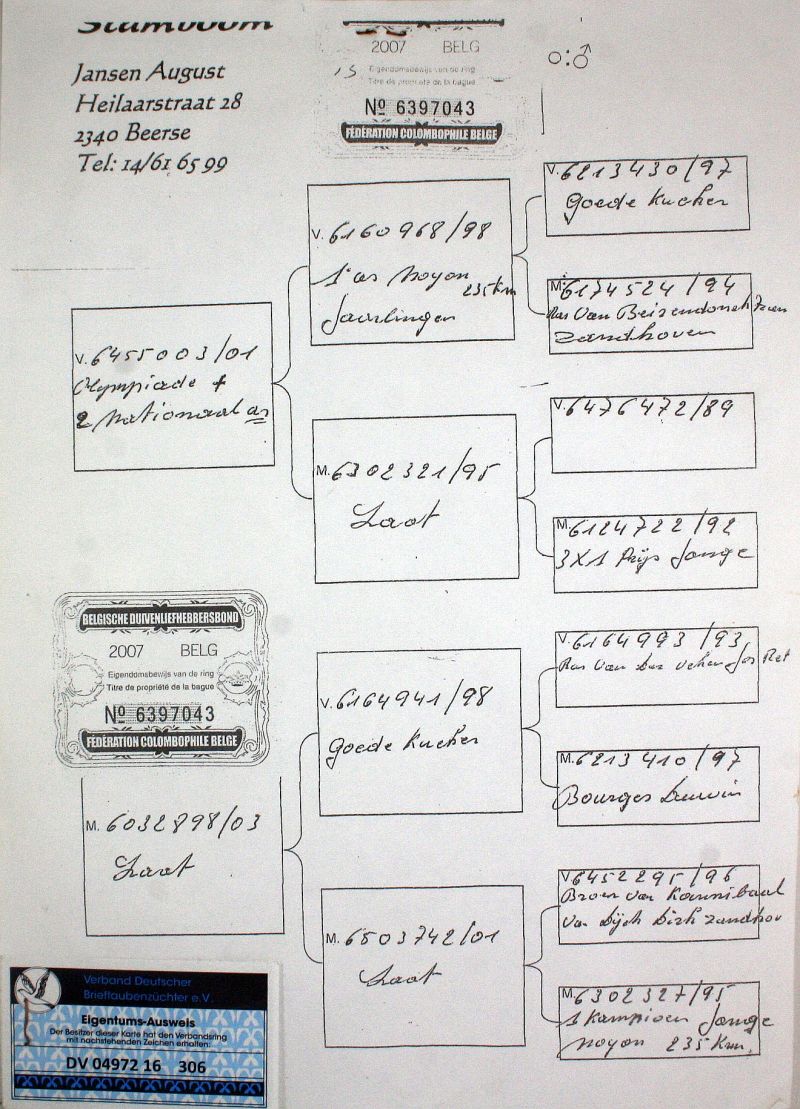 Stamboom
Jansen August
Heilaarstraat 28
2340 Beerse
Tel: 14/61 65 99
2007 BELG
Eigendomsbewijs van de ring
Titre de propriété de la bague
Nº 6397043
FÉDÉRATION COLOMBOPHILE BELGE
V. 6455003/01
Olympiade +
2 Nationaal as
V. 6160968/98
1° as Noyon
235 Km
Jaarlingen
M. 6302321/95
Laat
V. 6213430/97
Goede Kweker
M. 6174524/94
Ras Van Beirendonck
Zandhoven
V. 6476472/89
M. 6124722/92
3X1 Prijs Jonge
BELGISCHE DUIVENLIEFHEBBERSBOND
2007 BELG
Eigendomsbewijs van de ring
Titre de propriété de la bague
Nº 6397043
FÉDÉRATION COLOMBOPHILE BELGE
M. 6032898/03
Laat
V. 6164941/98
Goede Kweker
M. 6503742/01
Laat
V. 6164993/93
Ras Van Der Jos Ret
M. 6213410/97
Bourges
V. 6452295/96
Broer van Kannibaal
Van Dijck Dirk Zandhov
M. 6302327/95
1 Kampioen Jonge
Noyon 235 Km.
Verband Deutscher
Brieftaubenzüchter e.V.
Eigentums-Ausweis
Der Besitzer dieser Karte hat den Verbandsring
mit nachstehenden Zeichen erhalten:
DV 04972 16 306